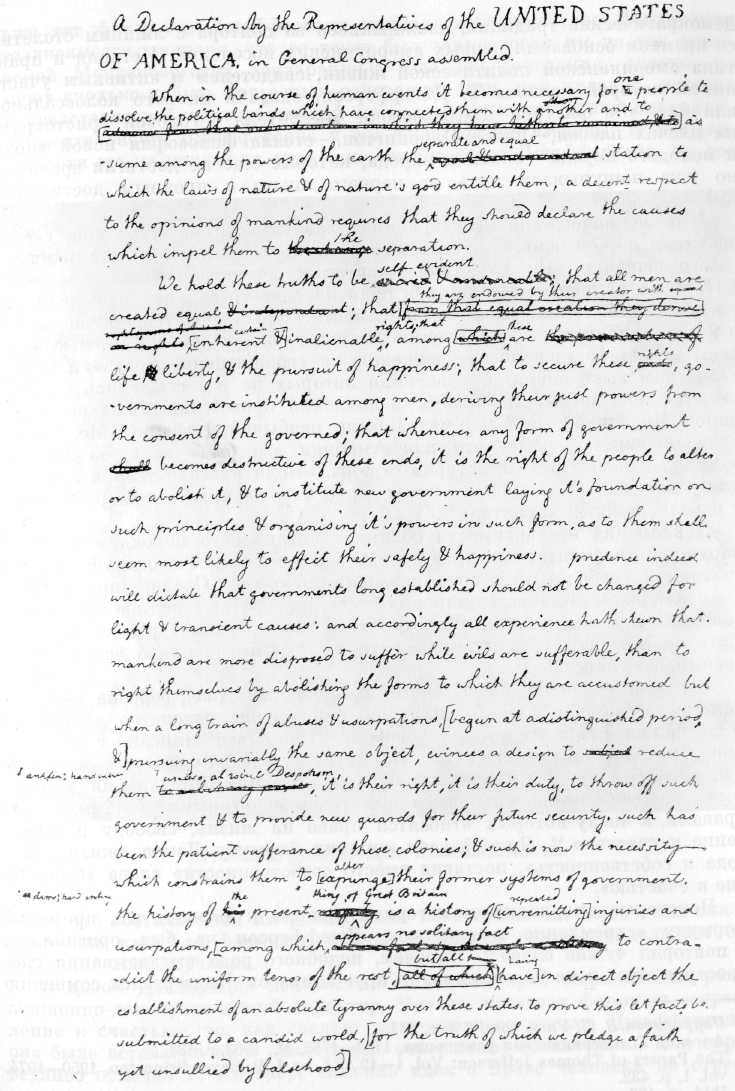 A Declaration by the Representatives of the UNITED STATES
OF AMERICA, in General Congress assembled.
When in the course of human events it becomes necessary for one people to
dissolve the political bands which have connected them with another and to
as
separate and equal
sume among the powers of the earth the station to
which the laws of nature & of nature's god entitle them, a decent respect
to the opinions of mankind requires that they should declare the causes
the
which impel them to the change separation.
self evident
We hold these truths to be ; that all men are
they are endowed by their creator with
created equal & independant; that [from that equal creation they derive
certain rights; that these
[inherent &] inalienable, among [which] are
life liberty, & the pursuit of happiness; that to secure these rights, go-
-vernments are instituted among men, deriving their just powers from
the consent of the governed; that whenever any form of government
shall becomes destructive of these ends, it is the right of the people to alter
or to abolish it, & to institute new government laying it's foundation on
such principles & organising it's powers in such form, as to them shall
seem most likely to effect their safety & happiness. prudence indeed
will dictate that governments long established should not be changed for
light & transient causes: and accordingly all experience hath shewn that
mankind are more disposed to suffer while evils are sufferable, than to
right themselves by abolishing the forms to which they are accustomed but
when a long train of abuses & usurpations, [begun at a distinguished period,
&] pursuing invariably the same object, evinces a design to reduce
under absolute Despotism
them , it is their right, it is their duty, to throw off such
government & to provide new guards for their future security. such has
been the patient sufferance of these colonies; & such is now the necessity
alter
which constrains them to [expunge] their former systems of government.
the king of Great Britain repeated
the history of his present is a history of [unremitting] injuries and
appears no solitary fact
usurpations, [among which, to contra-
but all having
-dict the uniform tenor of the rest, [all of which] [have] in direct object the
establishment of an absolute tyranny over these states. to prove this let facts be
submitted to a candid world, [for the truth of which we pledge a faith
yet unsullied by falsehood]